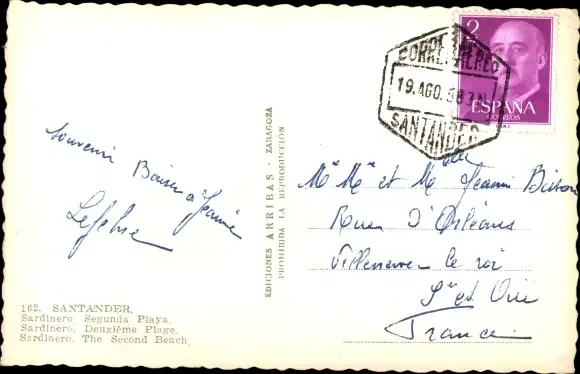 2
CORREO AEREO
19.AGO.58
SANTANDER
ESPAÑA
CORREOS
Souvenir Baiser a Jeanine
Lefebvre
EDICIONES ARRIBAS - ZARAGOZA
PROHIBIDA LA REPRODUCCIÓN
Mr Mme et Mlle Jeanin
Rue D'Orléans
Villeneuve le roi
Sne et Oise
France
162. SANTANDER.
Sardinero. Segunda Playa.
Sardinero. Deuxiéme Plage.
Sardinero. The Second Beach.